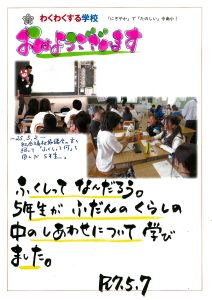 わくわくする学校
「にぎやか」で「たのしい」中南小！
おはようございます
ふくしって なんだろう。
5年生が ふだんの くらしの
中の しあわせについて 学び
ました。
R7.5.7